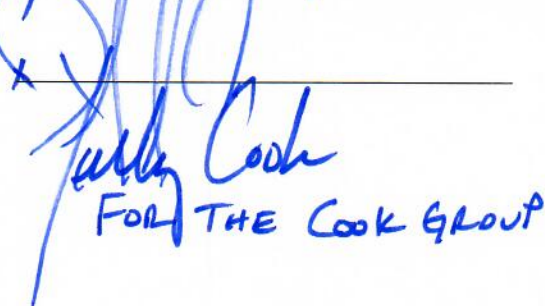 x
Cook
FOR THE COOK GROUP